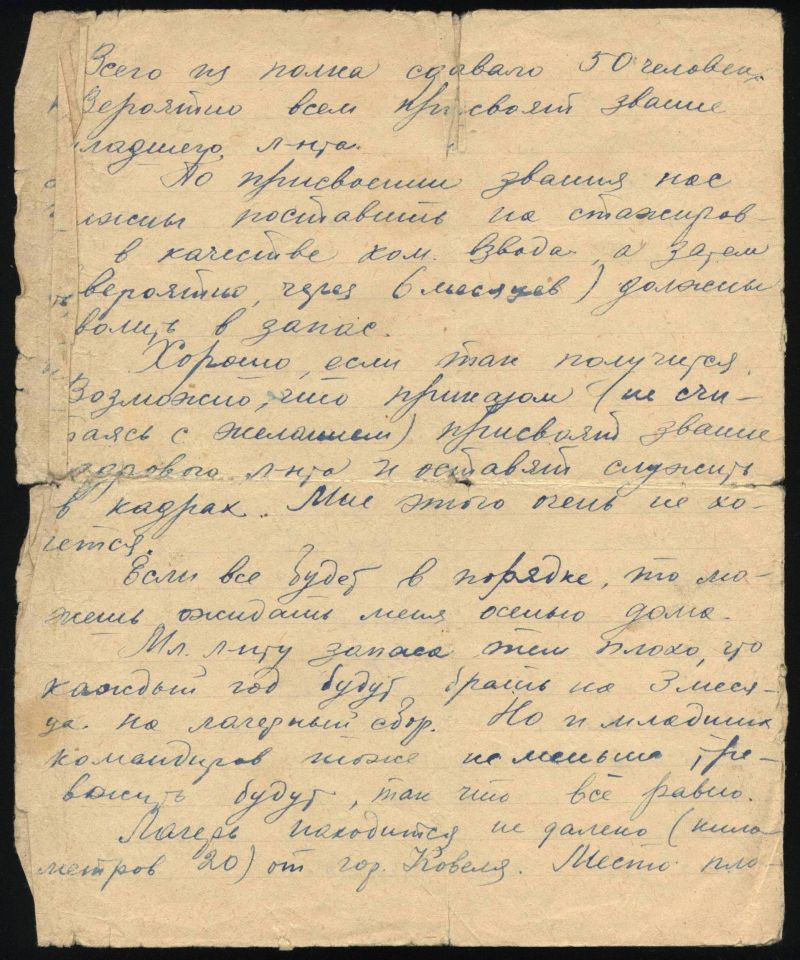 Всего из полка сдавало 50 человек.
Вероятно всем присвоят звание
ладшего л-нта.
По присвоении звания нас
лжны поставить на стажиров-
в качестве ком. взвода, а затем
вероятно, через 6 месяцев) должны
волить в запас.
Хорошо, если так получится.
Возможно, что приказом (не счи-
таясь с желанием) присвоят звание
л-нта и оставят служить
в кадрах. Мне этого очень не хо-
чется.
Если все будет в порядке, то мо-
жешь ожидать меня осенью дома.
Мл. л-нту запаса тем плохо, что
каждый год будут брать на 3 меся-
ца на лагерный сбор. Но и младших
командиров тоже не меньше тре-
вожить будут, так что всё равно.
Лагерь находится не далеко (кило-
метров 20) от гор. Ковеля. Место пло-